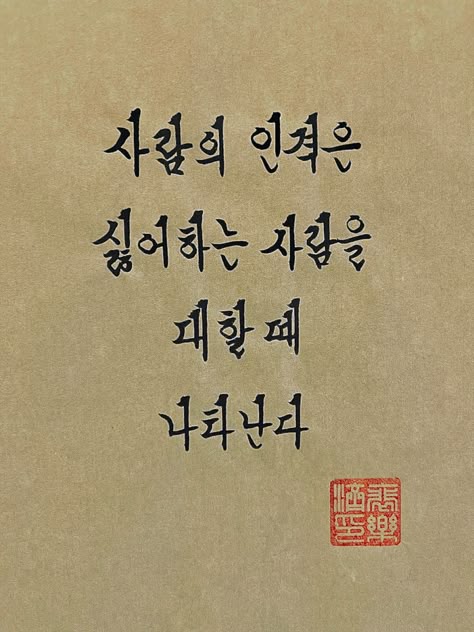 사람의 인격은
싫어하는 사람을
대할 때
나타난다